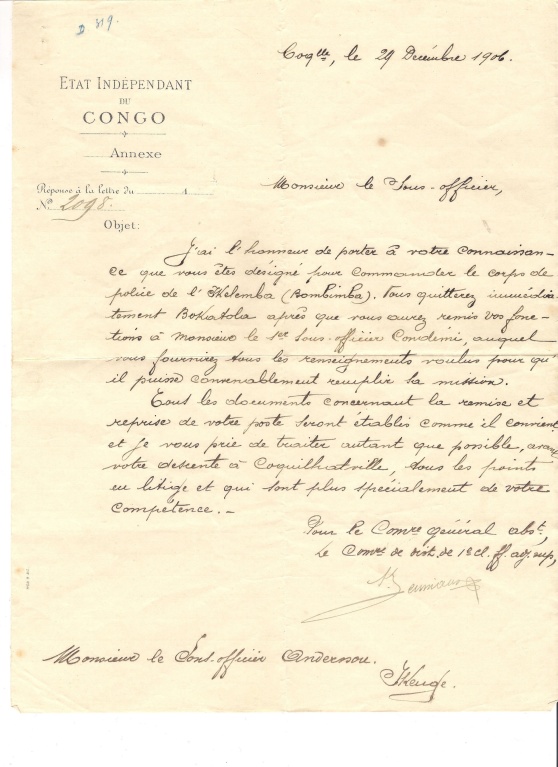 D 319.
Coq^lle, le 29 Décembre 1906.
ETAT INDÉPENDANT
DU
CONGO
Annexe
Réponse à la lettre du 1
N° 2098.
Objet:
Monsieur le Sous-officier,
J'ai l'honneur de porter à votre connaissan-
ce que vous êtes désigné pour commander le corps de
police de l'Ikelemba (Bombimba). Vous quitterez immédia-
tement Bokatola après que vous aurez remis vos fonc-
tions à Monsieur le 1er Sous-officier Condini, auquel
vous fournirez tous les renseignements voulus pour qu'
il puisse convenablement remplir sa mission.
Tous les documents concernant la remise et
reprise de votre poste seront établis comme il convient
et je vous prie de traiter autant que possible, avant
votre descente à Coquilhatville, tous les points
en litige et qui sont plus spécialement de votre
compétence.-
Pour le Comre général abst,
Le Comre de dist. de 1e cl. ff. aj. sup,
Monsieur le Sous-officier Anderson.
Ikenge.